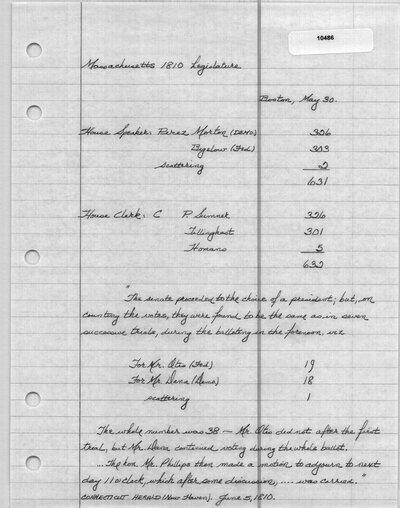 10486
Massachusetts 1810 Legislature
Boston, May 30.
House Speaker: Perez Morton (DEMO) 326
Bigelow (Fed) 303
scattering 2
631
House Clerk: C P. Sumner 326
Tillinghast 301
Homans 5
632
"The senate proceeded to the choice of a president; but, on
counting the votes, they were found to be the same as in seven
successive trials, during the balloting in the forenoon. viz
For Mr. Otis (Fed) 19
For Mr. Dana (Demo) 18
scattering 1
The whole number was 38 — Mr. Otis did not after the first
trial, but Mr. Dana continued voting during the whole ballot.
... The hon. Mr. Phillips then made a motion to adjourn to next
day 11 o'clock, which after some discussion, .... was carried."
CONNECTICUT HERALD (New Haven). June 5, 1810.